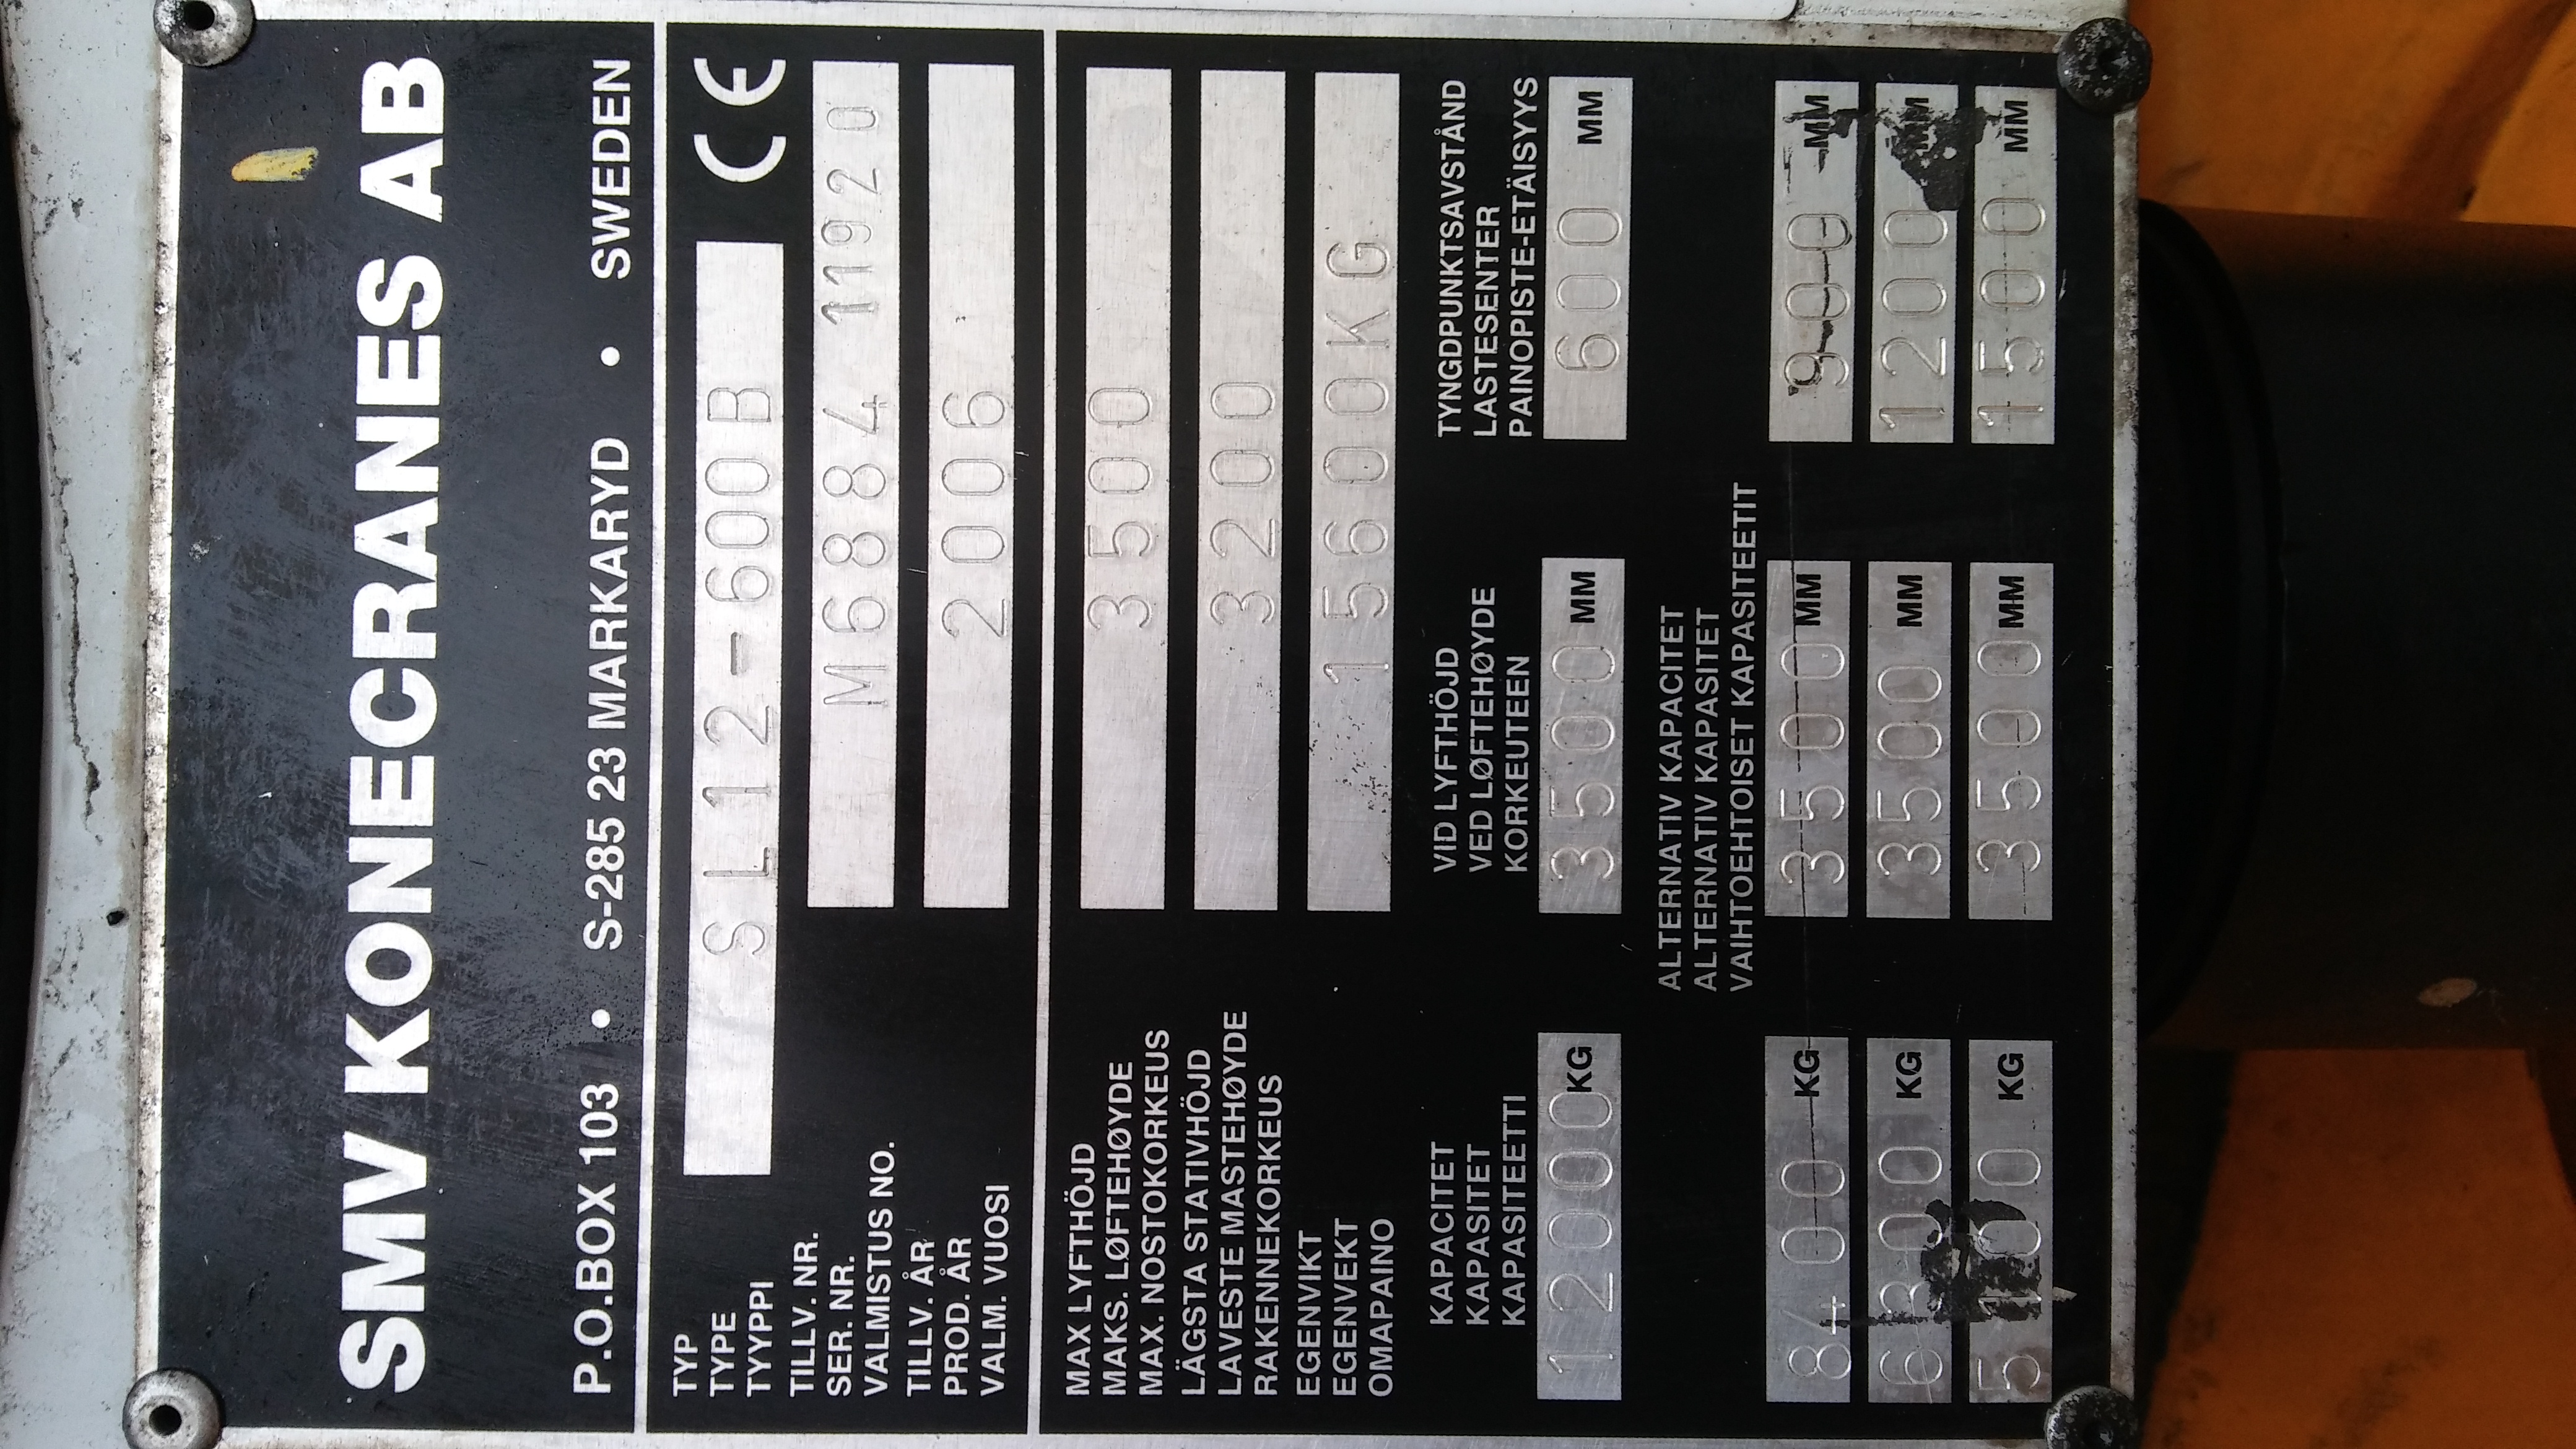 SMV KONECRANES AB
P.O.BOX 103 • S-285 23 MARKARYD • SWEDEN
TYP
TYPE
TYYPPI
SL12-600B
CE
TILLV. NR.
SER. NR.
VALMISTUS NO.
M6884 11920
TILLV. ÅR
PROD. ÅR
VALM. VUOSI
2006
MAX LYFTHÖJD
MAKS. LØFTEHØYDE
MAX. NOSTOKORKEUS
3500
LÄGSTA STATIVHÖJD
LAVESTE MASTEHØYDE
RAKENNEKORKEUS
3200
EGENVIKT
EGENVEKT
OMAPAINO
15600KG
KAPACITET VID LYFTHÖJD TYNGDPUNKTSAVSTÅND
KAPASITET VED LØFTEHØYDE LASTESENTER
KAPASITEETTI KORKEUTEEN PAINOPISTE-ETÄISYYS
12000 KG 3500 MM 600 MM
ALTERNATIV KAPACITET
ALTERNATIV KAPASITET
VAIHTOEHTOISET KAPASITEETIT
8400 KG 3500 MM 900 MM
6300 KG 3500 MM 1200 MM
5100 KG 3500 MM 1500 MM